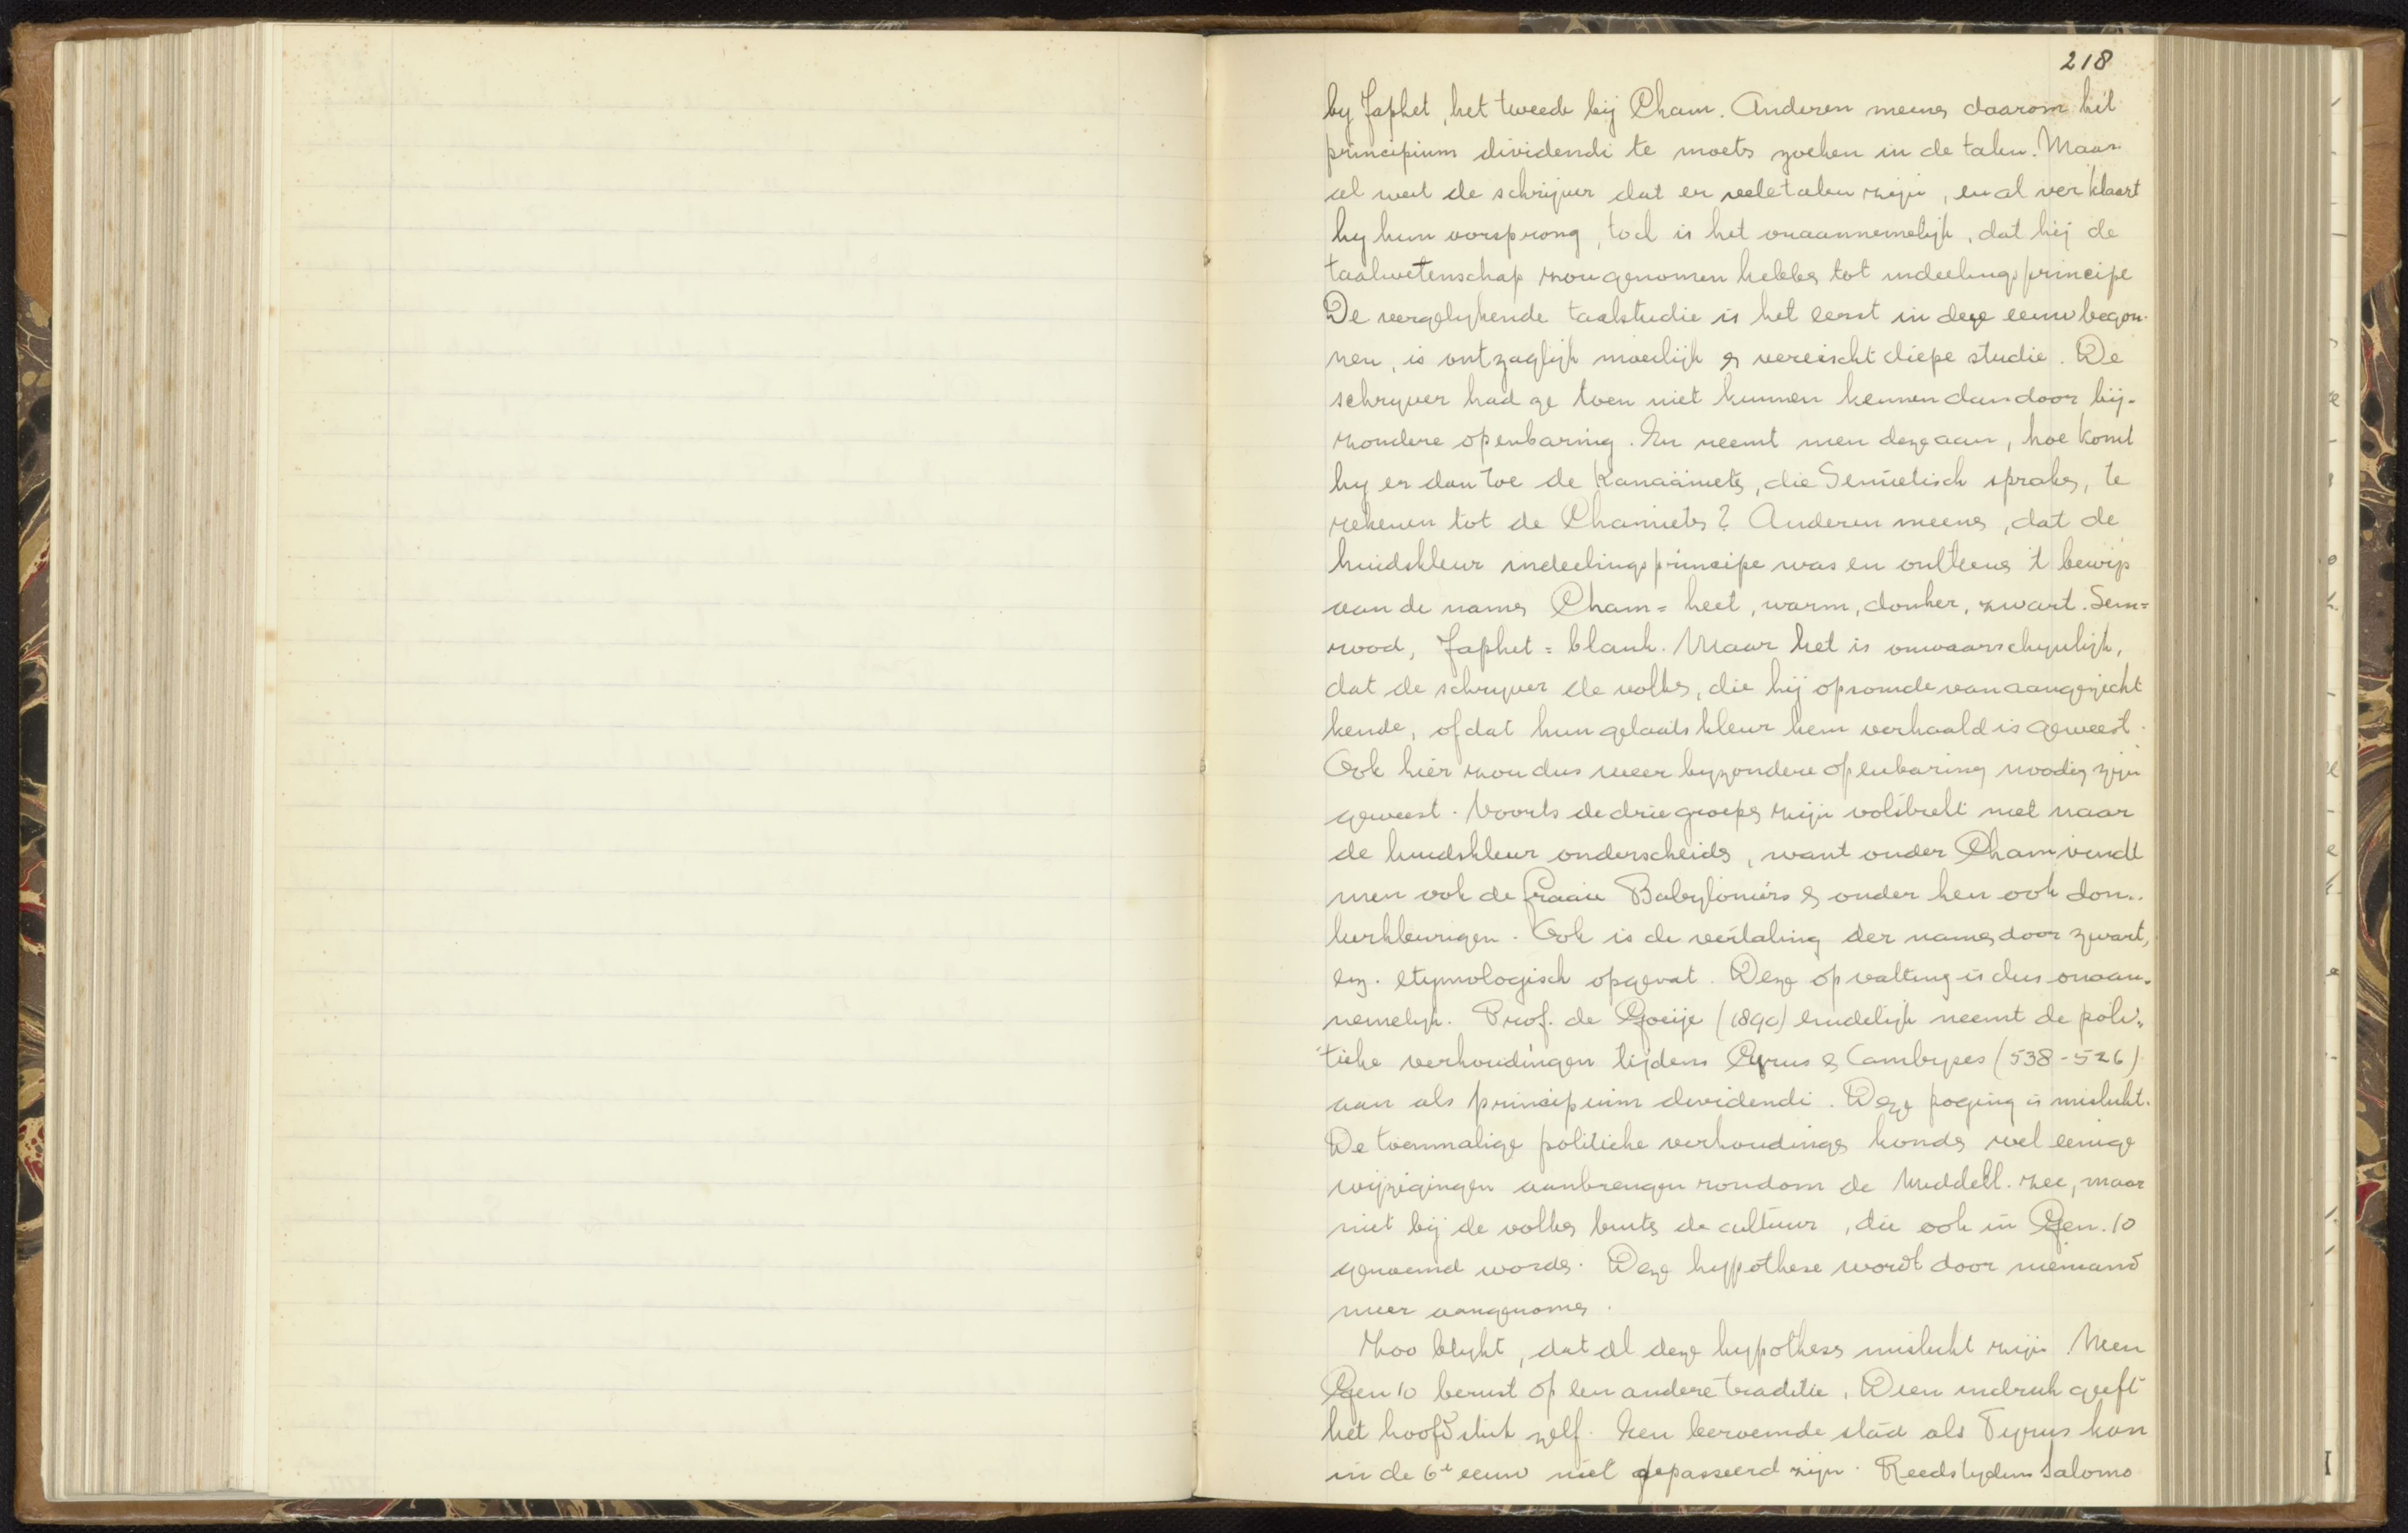 218
by Japhet, het tweede bij Cham. Anderen meenen daarom het
principium dividendi te moeten zoeken in de talen. Maar
al weet de schrijver dat er vele talen zijn, en al verklaart
hij hun oorsprong, toch is het onaannemelijk, dat hij de
taalwetenschap zou genomen hebben tot indeelingsprincipe
De vergelykende taalstudie is het eerst in deze eeuw begon-
nen, is ontzaglijk moeilijk & vereischt diepe studie. De
schryver had ze toen niet kunnen kennen dan door bij-
zondere openbaring. En neemt men deze aan, hoe komt
hy er dan toe de Kanaänieten, die Semietisch spraken, te
rekenen tot de Chamieten? Anderen meenen, dat de
huidskleur indeelingsprincipe was en ontleenen 't bewijs
aan de namen Cham = heet, warm, donker, zwart. Sem=
rood, Japhet = blank. Maar het is onwaarschynlijk,
dat de schryver de volken, die hij opsomde van aangezicht
kende, of dat hun gelaatskleur hem verhaald is geweest.
Ook hier zou dus weer byzondere openbaring noodig zijn
geweest. Voorts de drie groepen zijn volstrekt niet naar
de huidskleur onderscheiden, want onder Cham vindt
men ook de fraaie Babyloniërs & onder hen ook don-
kerkleurigen. Ook is de vertaling der namen door zwart,
enz. etymologisch opgevat. Deze opvatting is dus onaan-
nemelyk. Prof. de Goeije (1890) eindelijk neemt de poli-
tieke verhoudingen tijdens Cyrus & Cambyses (538-526)
aan als principium dividendi. Deze poging is mislukt.
De toenmalige politieke verhoudingen konden wel eenige
wijzigingen aanbrengen rondom de Middell. zee, maar
niet bij de volken buiten de cultuur, die ook in Gen. 10
genoemd worden. Deze hypothese wordt door niemand
meer aangenomen.
Zoo blykt, dat al deze hypothesen mislukt zijn. Neen
Gen 10 berust op een andere traditie. Dien indruk geeft
het hoofdstuk zelf. Een beroemde stad als Tyrus kan
in de 6e eeuw niet gepasseerd zijn. Reeds tydens Salomo